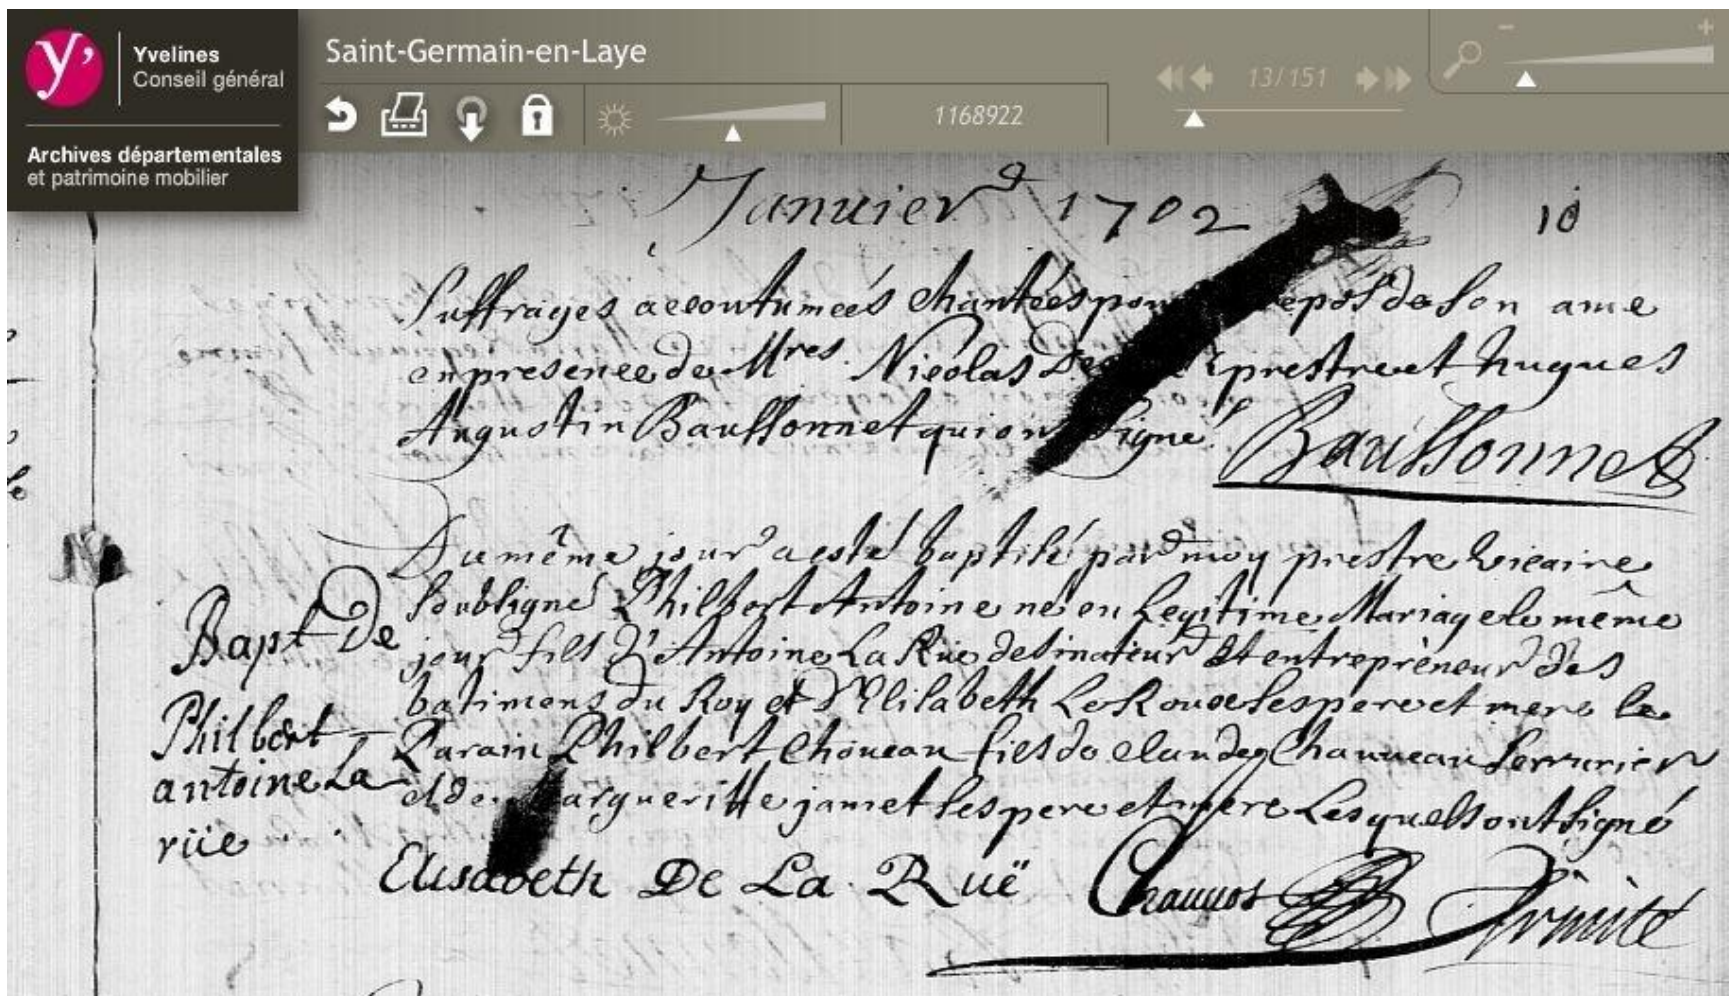 Yvelines
Conseil général
Archives départementales
et patrimoine mobilier
Saint-Germain-en-Laye
1168922
13/151
Januier 1702
10
Suffrages accoutumeés chanteés pour repos de son ame
en presence de Mres Nicolas prestre et hugues
Augustin Baussonnet qui ont signé
Baussonnet
Du même jour a esté baptisé par moy prestre vicaire
soubsigné Philbert Antoine né en Legitime Mariage le même
jour fils d'Antoine La Rüe desinateur et entrepreneur des
batimens du Roy et d'Elisabeth Le Roux ses pere et mere le
Parain Philbert Choueau fils de claude Chauueau serrurier
et de Margueritte jamet ses pere et mere Lesquels ont signé
Bapt De
Philbert
antoine La
rüe
Elisabeth De La Ruë